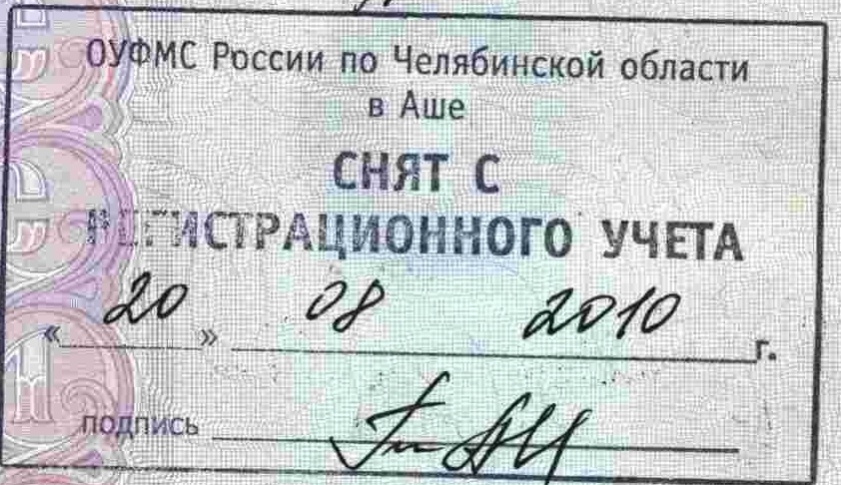 ОУФМС России по Челябинской области
в Аше
СНЯТ С
РЕГИСТРАЦИОННОГО УЧЕТА
« 20 » 08 2010 г.
подпись